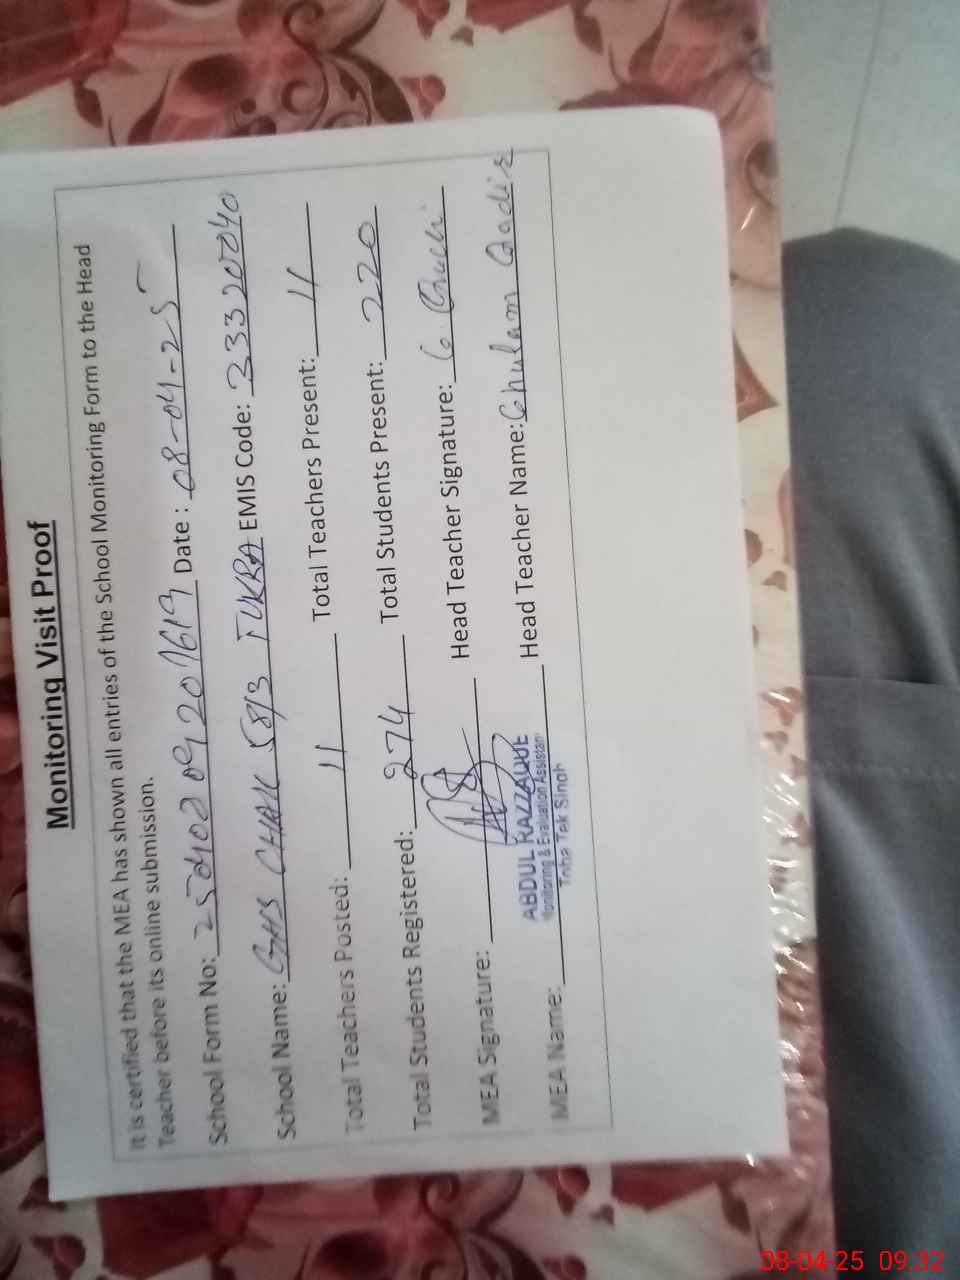 Monitoring Visit Proof
It is certified that the MEA has shown all entries of the School Monitoring Form to the Head
Teacher before its online submission.
School Form No: Date : 08-04-25
School Name: GHS CHAK 58/3 TUKRA EMIS Code: 33320040
Total Teachers Posted: 11 Total Teachers Present: 11
Total Students Registered: 274 Total Students Present: 220
MEA Signature: Head Teacher Signature:
ABDUL RAZZAQUE
Monitoring & Evaluation Assistan
Toba Tek Singh
MEA Name: Head Teacher Name: Ghulam Qadir
08-04-25 09:32